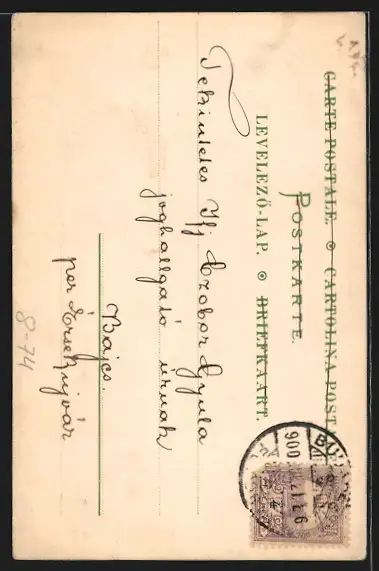 CARTE POSTALE. ⊙ CARTOLINA POST
POSTKARTE.
LEVELEZŐ-LAP. ⊙ BRIEFKAART.
Tekintetes Ifj Czobor Gyula
joghallgató úrnak
Bajcs.
per Érsekujvár
8-74
900